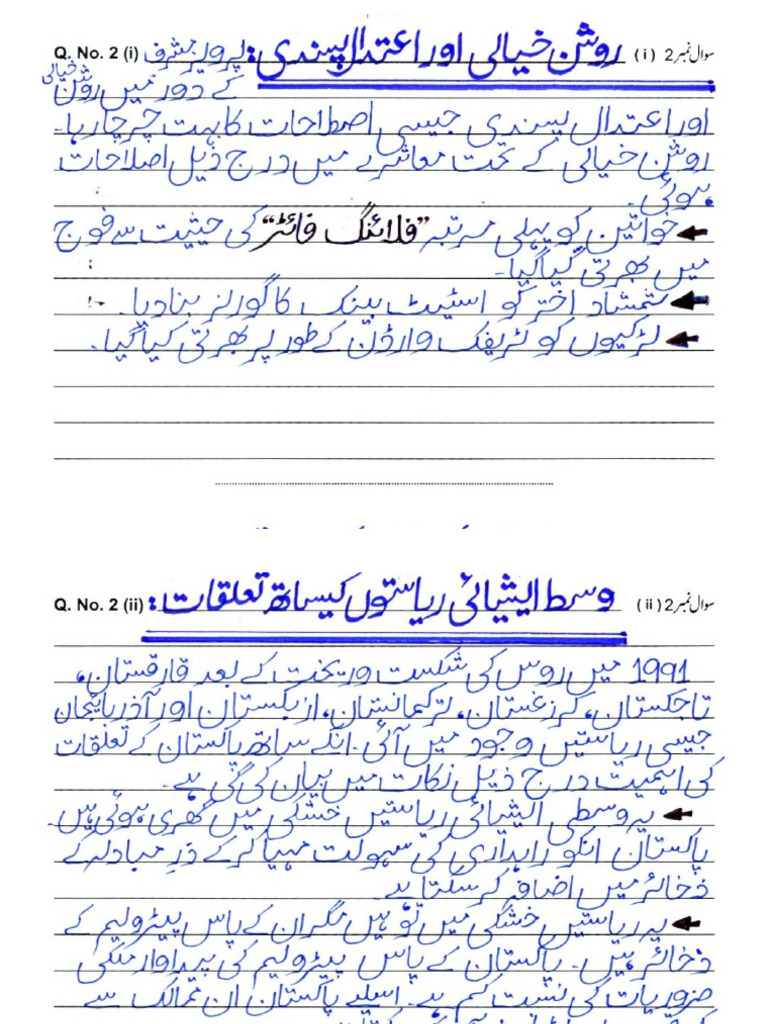 Q. No. 2 (i) روشن خیالی اور اعتدال پسندی: پرویز مشرف (i) سوال نمبر 2
کے دور میں روشن خیالی
اور اعتدال پسندی جیسی اصطلاحات کا بہت چرچا رہا۔
روشن خیالی کے تحت معاشرے میں درج ذیل اصلاحات
ہوئی۔
خواتین کو پہلی مرتبہ "فلائنگ فائٹر" کی حیثیت سے فوج
میں بھرتی کیا گیا۔
شمشاد اختر کو اسٹیٹ بینک کا گورنر بنا دیا۔
لڑکیوں کو ٹریفک وارڈن کے طور پر بھرتی کیا گیا۔
Q. No. 2 (ii) وسط ایشیائی ریاستوں کیساتھ تعلقات: (ii) سوال نمبر 2
1991 میں روس کی شکست وریخت کے بعد قازقستان،
تاجکستان، کرغستان، ترکمانستان، ازبکستان اور آذربائیجان
جیسی ریاستیں وجود میں آئی۔ انکے ساتھ پاکستان کے تعلقات
کی اہمیت درج ذیل نکات میں بیان کی گئی ہے۔
یہ وسطی ایشیائی ریاستیں خشکی میں گھری ہوئی ہیں۔
پاکستان انکو راہداری کی سہولت مہیا کر کے زرِ مبادلہ کے
ذخائر میں اضافہ کر سکتا ہے۔
یہ ریاستیں خشکی میں تو ہیں مگر ان کے پاس پیٹرولیم کے
ذخائر ہیں۔ پاکستان کے پاس پیٹرولیم کی پیداوار ملکی
ضروریات کی نسبت کم ہے۔ اسلیے پاکستان ان ممالک سے